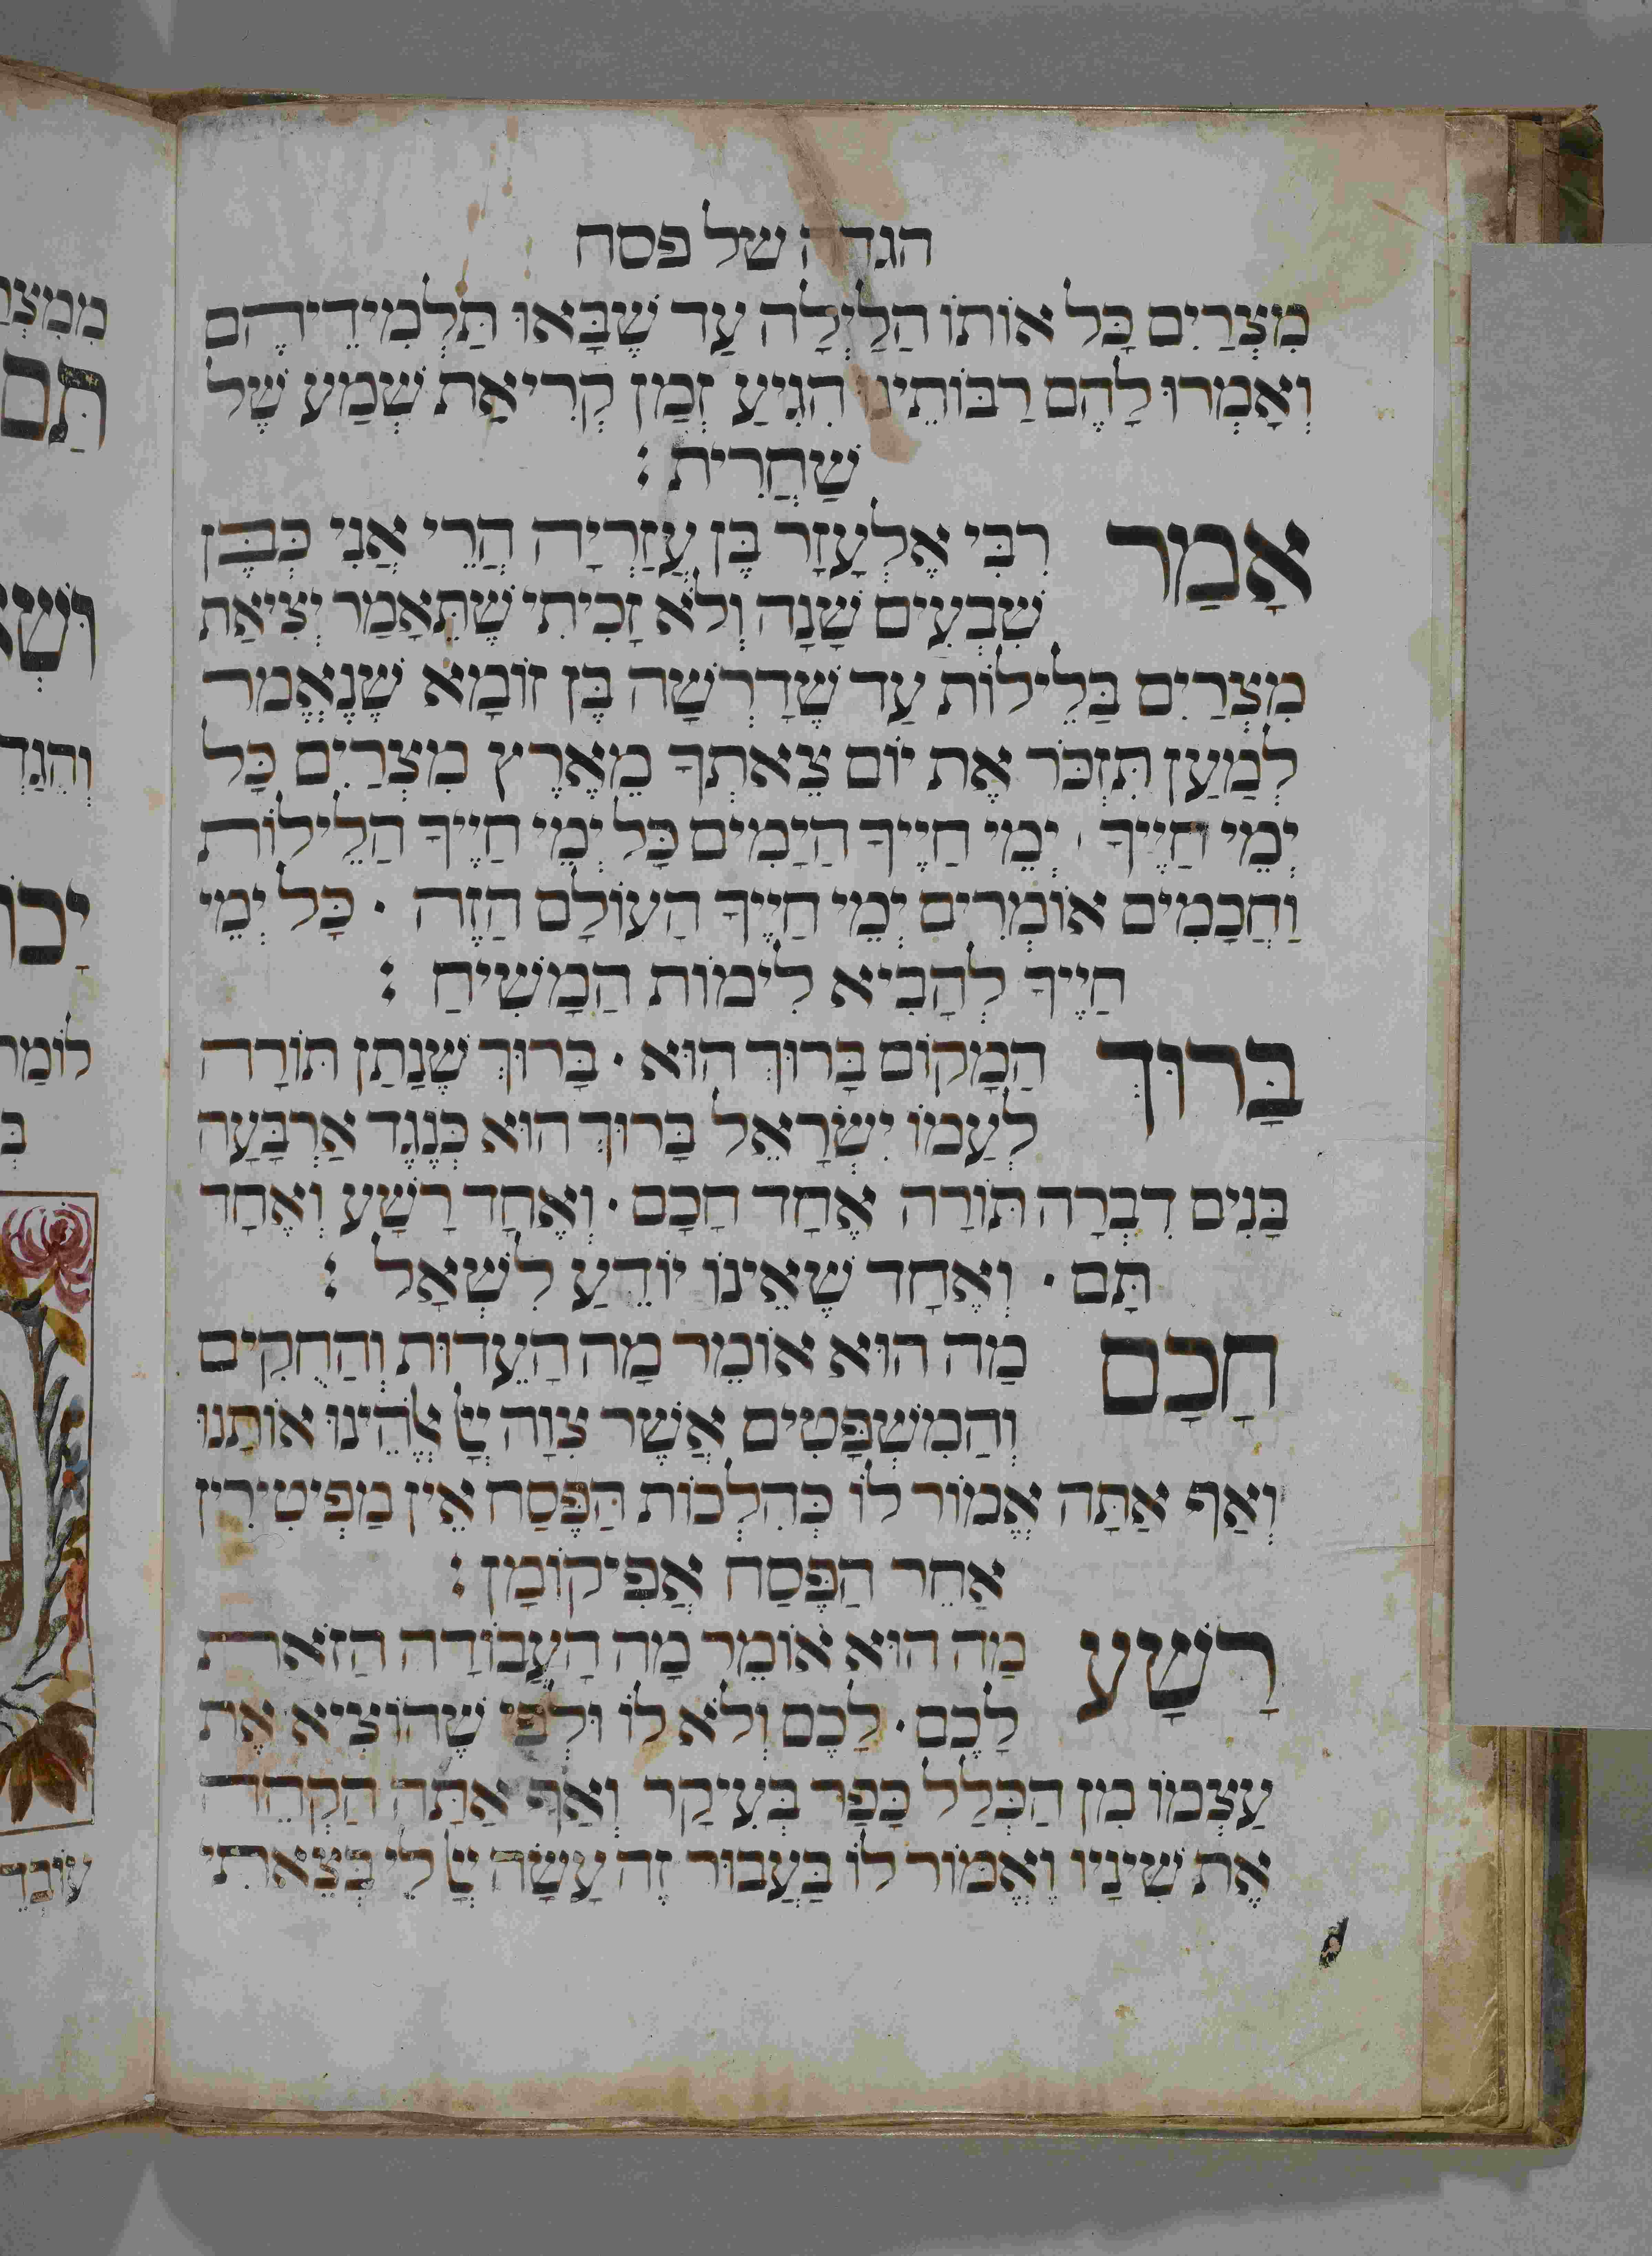 הגדה של פסח
מִצְרַיִם כָּל אוֹתוֹ הַלַיְלָה עַד שֶׁבָּאוּ תַּלְמִידֵיהֶם
וְאָמְרוּ לָהֶם רַבּוֹתֵינוּ הִגִיעַ זְמַן קְרִיאַת שְׁמַע שֶׁל
שַׁחֲרִית :
אָמַר רִבִּי אֶלְעָזָר בֶּן עֲזַרְיָה הֲרֵי אֲנִי כְּבֶן
שִׁבְעִים שָׁנָה וְלֹא זָכִיתִי שֶׁתֵּאָמַר יְצִיאַת
מִצְרַיִם בַּלֵילוֹת עַד שֶׁדְרָשָׁה בֶּן זוֹמָא שֶׁנֶאֱמַר
לְמַעַן תִּזְכֹּר אֶת יוֹם צֵאתְךָ מֵאֶרֶץ מִצְרַיִם כָּל
יְמֵי חַיֶיךָ · יְמֵי חַיֶיךָ הַיָמִים כָּל יְמֵי חַיֶיךָ הַלֵילוֹת
וַחֲכָמִים אוֹמְרִים יְמֵי חַיֶיךָ הָעוֹלָם הַזֶה · כָּל יְמֵי
חַיֶיךָ לְהָבִיא לִימוֹת הַמָשִׁיחַ :
בָּרוּךְ הַמָקוֹם בָּרוּךְ הוּא · בָּרוּךְ שֶׁנָתַן תּוֹרָה
לְעַמוֹ יִשְׂרָאֵל בָּרוּךְ הוּא כְּנֶגֶד אַרְבָּעָה
בָּנִים דִבְרָה תּוֹרָה אֶחָד חָכָם · וְאֶחָד רָשָׁע וְאֶחָד
תָּם · וְאֶחָד שֶׁאֵינוֹ יוֹדֵעַ לִשְׁאָל :
חָכָם מַה הוּא אוֹמֵר מָה הָעֵדוּת וְהַחֻקִים
וְהַמִשְׁפָּטִים אֲשֶׁר צִוָה יְיָ אֱלֹהֵינוּ אוֹתָנוּ
וְאַף אַתָּה אֱמוֹר לוֹ כְּהִלְכוֹת הַפֶּסַח אֵין מַפְטִירִין
אַחֵר הַפֶּסַח אֲפִיקוֹמָן :
רָשָׁע מַה הוּא אוֹמֵר מָה הָעֲבוֹדָה הַזֹאת
לָכֶם · לָכֶם וְלֹא לוֹ וּלְפִי שֶׁהוֹצִיא אֶת
עַצְמוֹ מִן הַכְּלָל כָּפַר בְּעִיקָר וְאַף אַתָּה הַקְהֵה
אֶת שִׁינָיו וֶאֱמוֹר לוֹ בַּעֲבוּר זֶה עָשָׂה יְיָ לִי בְּצֵאתִי